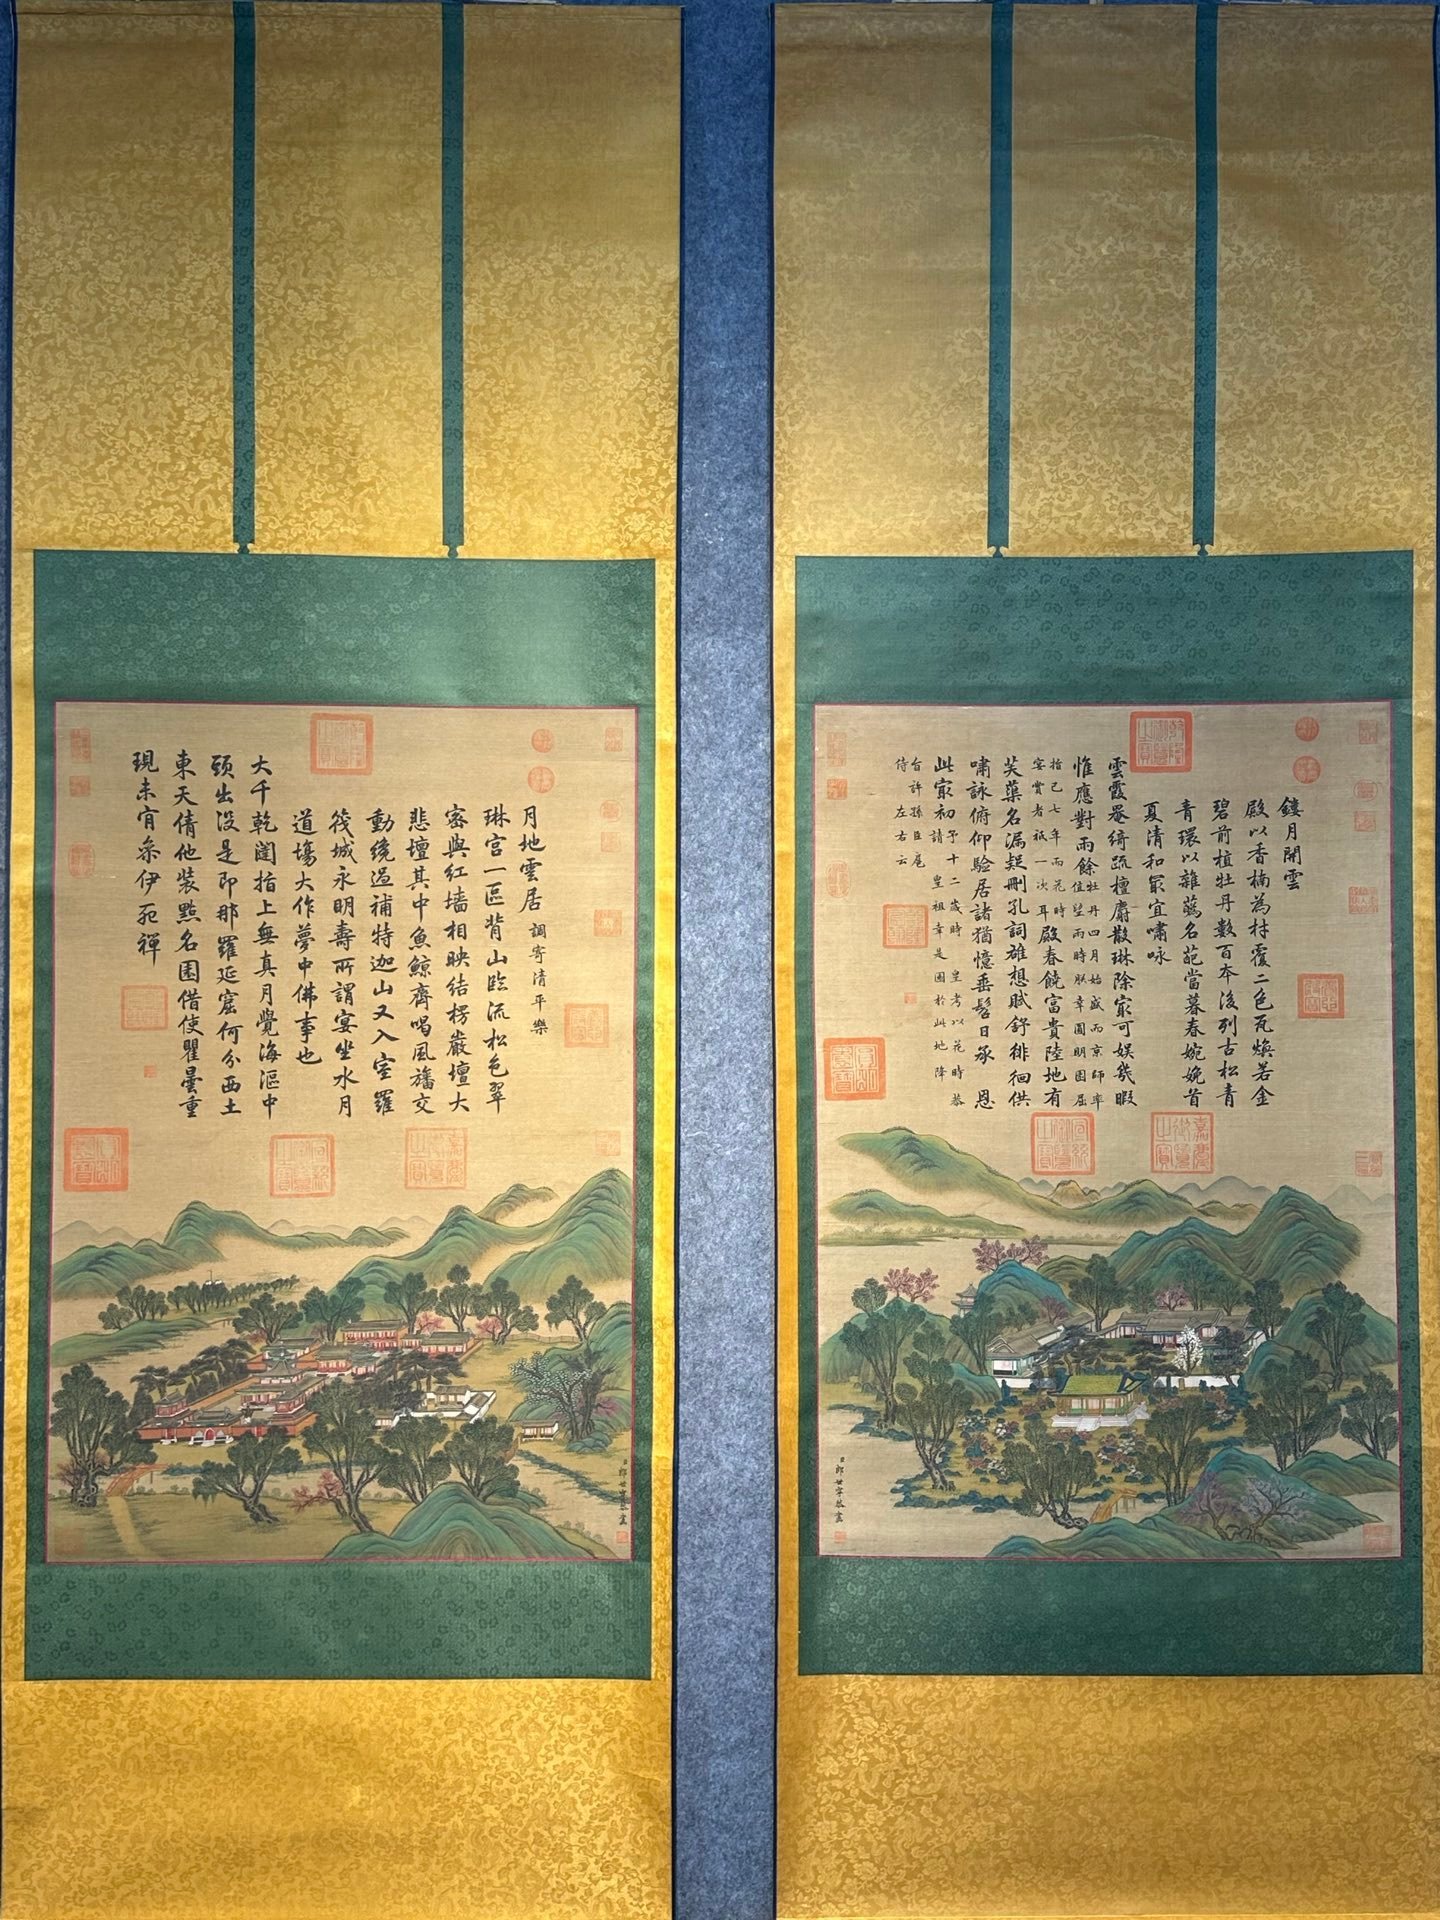 月地雲居 調寄清平樂
琳宮一區背山臨流松色翠
密與紅墻相映結楞嚴壇大
悲壇其中魚鯨齊喝風旛交
動繞過補特迦山又入室羅
筏城永明壽所謂宴坐水月
道場大作夢中佛事也
大千乾闥指上無真月覺海漚中
頭出沒是即那羅延窟何分西土
東天倩他裝點名園借使瞿曇重
現未宵參伊死禪
臣郎世寧恭畫
鏤月開雲
殿以香楠為材覆二色瓦煥若金
碧前植牡丹數百本後列古松青
青環以雜蘤名葩當暮春婉娩首
夏清和最宜嘯咏
雲霞罨綺疏檀麝散琳除最可娛幾暇
惟應對雨餘 牡丹四月始盛而京師率值望雨時朕幸圓明園屈
指已七年而花時宴賞者祇一次耳 殿春饒富貴陸地有
芙蕖名漏疑刪孔詞雄想賦舒徘徊供
嘯詠俯仰驗居諸猶憶垂髫日承 恩
此最初 予十二歲時 皇考以花時恭請 皇祖幸是園於此地降
旨許孫臣扈侍左右云
臣郎世寧恭畫
乾隆御覽之寶
嘉慶御覽之寶
宣統御覽之寶
乾隆御覽之寶
嘉慶御覽之寶
宣統御覽之寶